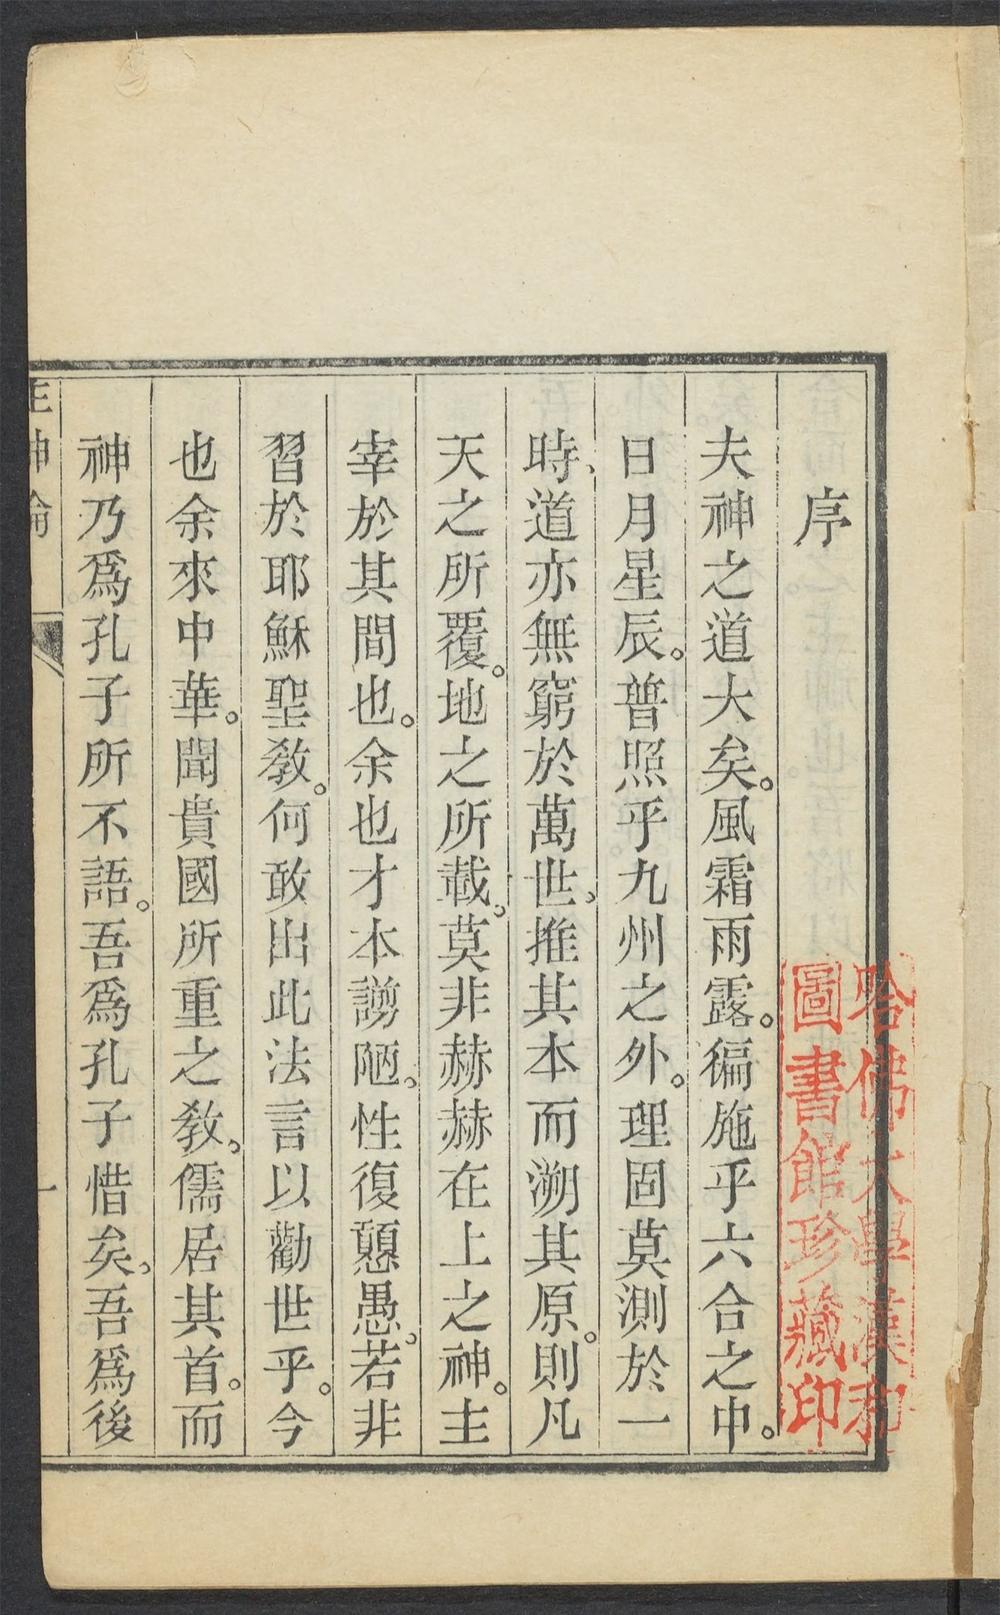 序
夫神之道大矣。風霜雨露。徧施乎六合之中。
日月星辰。普照乎九州之外。理固莫測於一
時、道亦無窮於萬世、推其本而溯其原。則凡
天之所覆。地之所載、莫非赫赫在上之神。主
宰於其間也。余也才本謭陋、性復戇愚、若非
習於耶穌聖教。何敢出此法言以勸世乎。今
也余來中華。聞貴國所重之教、儒居其首。而
神乃爲孔子所不語。吾爲孔子惜矣、吾爲後
哈佛大學漢和
圖書館珍藏印
神論
一